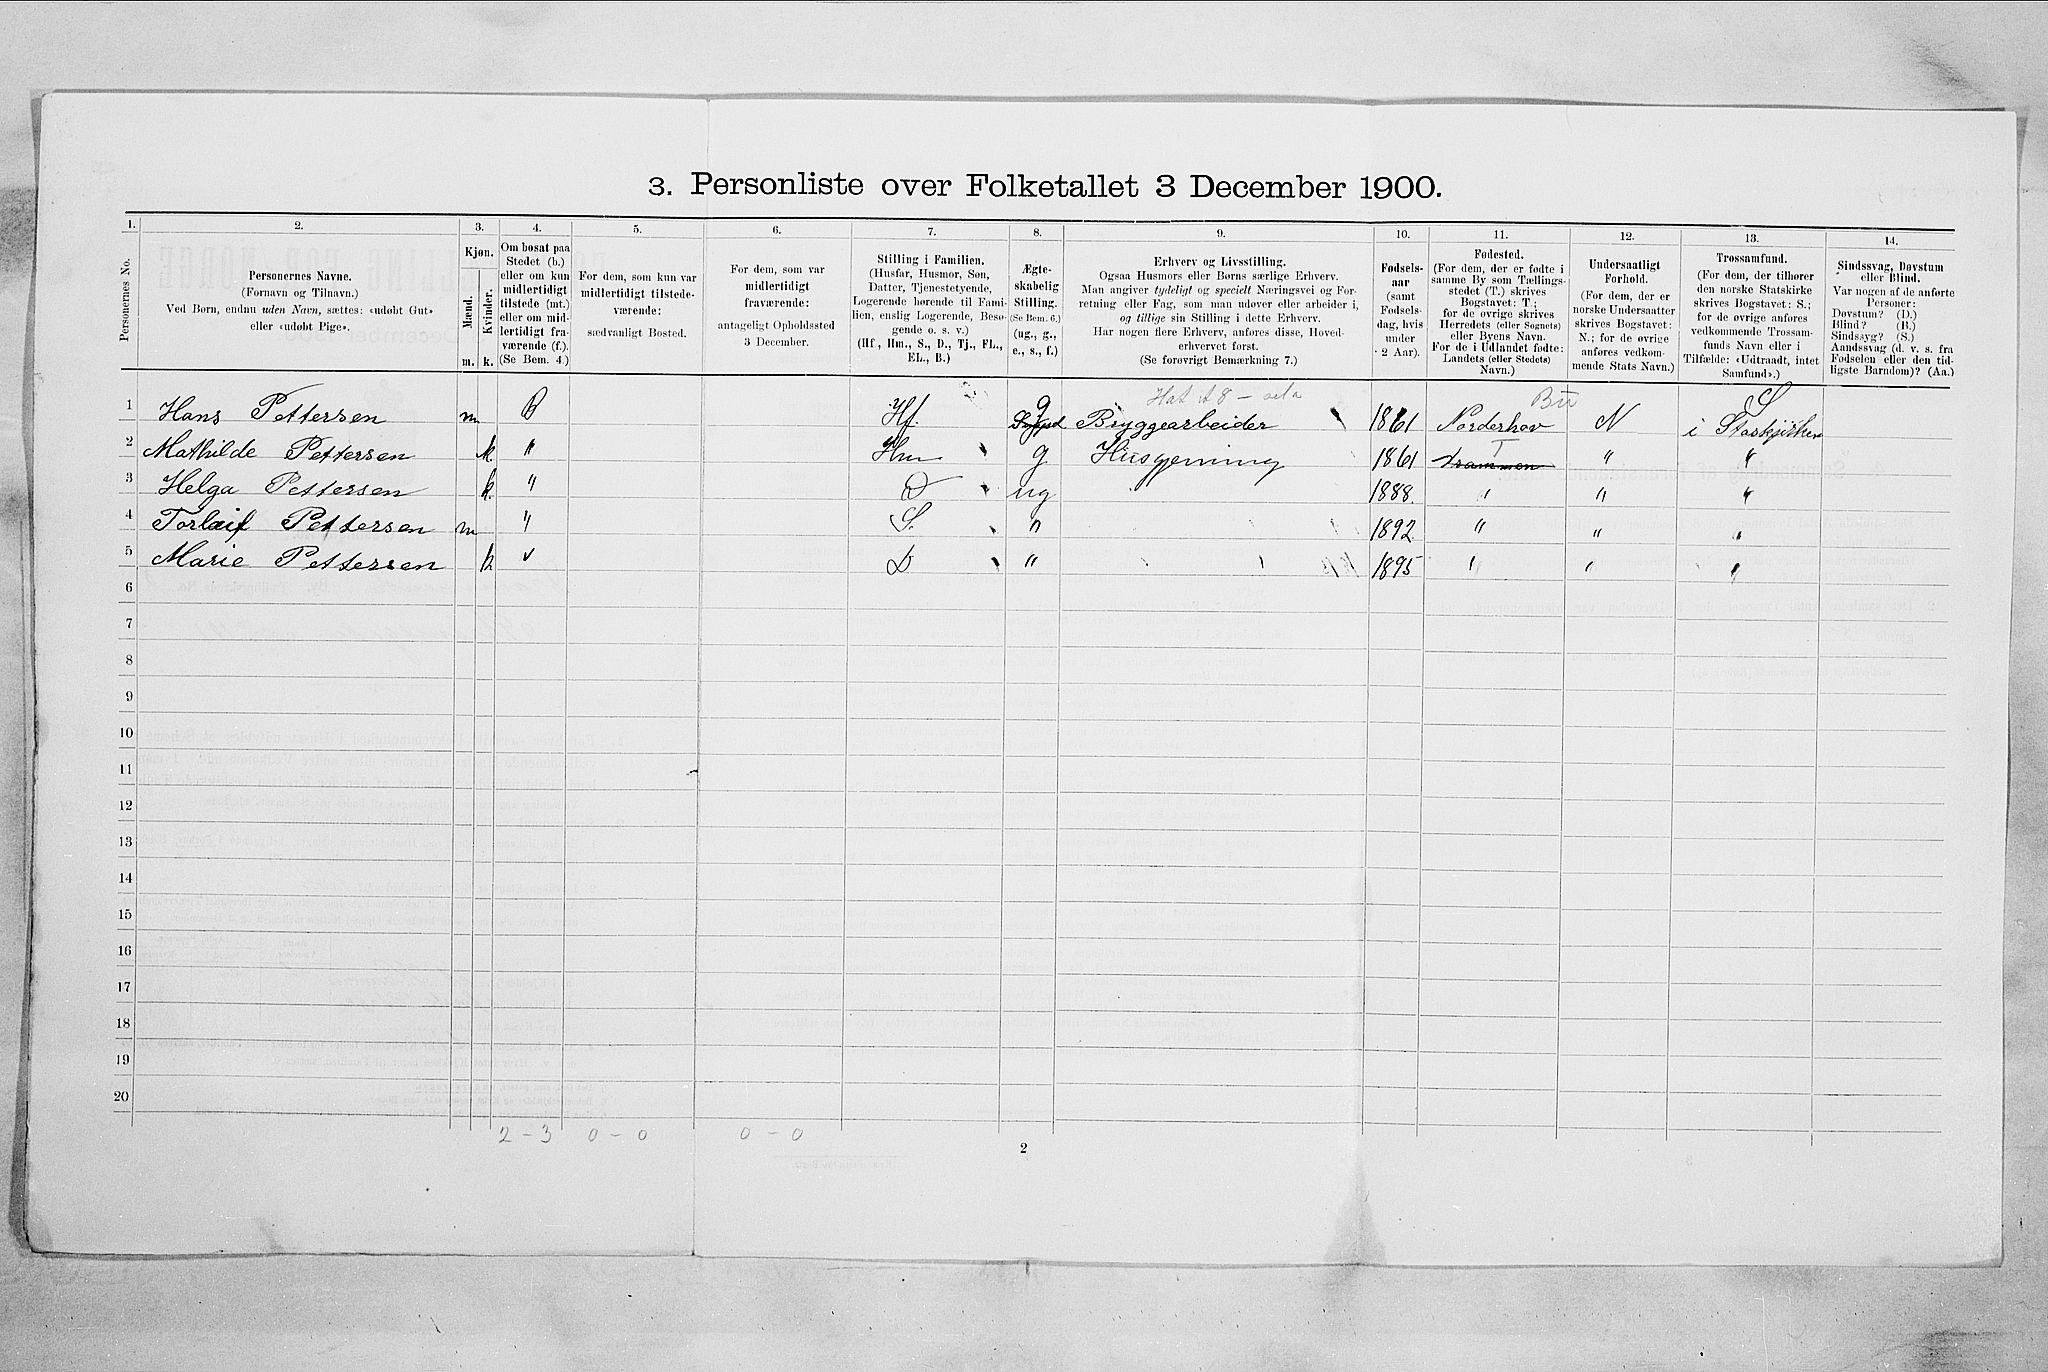 3. Personliste over Folketallet 3 December 1900.
1. 2. 3. 4. 5. 6. 7. 8. 9. 10. 11. 12. 13. 14.
Personernes No.
Personernes Navne.
(Fornavn og Tilnavn.)
Ved Børn, endnu uden Navn, sættes: «udøbt Gut»
eller «udøbt Pige».
Kjøn.
Mænd.
Kvinder.
m. k.
Om bosat paa
Stedet (b.)
eller om kun
midlertidigt
tilstede (mt.)
eller om mid-
lertidigt fra-
værende (f.).
(Se Bem. 4.)
For dem, som kun var
midlertidigt tilstede-
værende:
sædvanligt Bosted.
For dem, som var
midlertidigt
fraværende:
antageligt Opholdssted
3 December.
Stilling i Familien.
(Husfar, Husmor, Søn,
Datter, Tjenestetyende,
Logerende hørende til Fami-
lien, enslig Logerende, Besø-
gende o. s. v.)
(Hf., Hm., S., D., Tj., FL.,
EL., B.)
Ægte-
skabelig
Stilling.
(Se Bem. 6.)
(ug., g.,
e., s., f.)
Erhverv og Livsstilling.
Ogsaa Husmors eller Børns særlige Erhverv.
Man angiver tydeligt og specielt Næringsvei og For-
retning eller Fag, som man udøver eller arbeider i,
og tillige sin Stilling i dette Erhverv.
Har nogen flere Erhverv, anføres disse, Hoved-
erhvervet først.
(Se forøvrigt Bemærkning 7.)
Fødsels-
aar
(samt
Fødsels-
dag, hvis
under
2 Aar).
Fødested.
(For dem, der er fødte i
samme By som Tællings-
stedet (T.) skrives
Bogstavet: T.;
for de øvrige skrives
Herredets (eller Sognets)
eller Byens Navn.
For de i Udlandet fødte:
Landets (eller Stedets)
Navn.)
Undersaatligt
Forhold.
(For dem, der er
norske Undersaatter
skrives Bogstavet:
N.; for de øvrige
anføres vedkom-
mende Stats Navn.)
Trossamfund.
(For dem, der tilhører
den norske Statskirke
skrives Bogstavet: S.;
for de øvrige anføres
vedkommende Trossam-
funds Navn eller i
Tilfælde: «Udtraadt, intet
Samfund».)
Sindssvag, Døvstum
eller Blind.
Var nogen af de anførte
Personer:
Døvstum? (D.)
Blind? (B.)
Sindssyg? (S.)
Aandssvag (d. v. s. fra
Fødselen eller den tid-
ligste Barndom)? (Aa.)
1 Hans Pettersen m B Hf. g Bryggearbeider 1861 Norderhov Bu N S i Statskjirken
2 Mathilde Pettersen k. " Hm g Husgjerning 1861 Drammen T " "
3 Helga Pettersen k. " D ug 1888. " " "
4 Torleif Pettersen m " S. " 1892. " " "
5 Marie Pettersen k " D " 1895 " " "
6
7
8
9
10
11
12
13
14
15
16
17
18
19
20
2 – 3 0 – 0 0 – 0
2